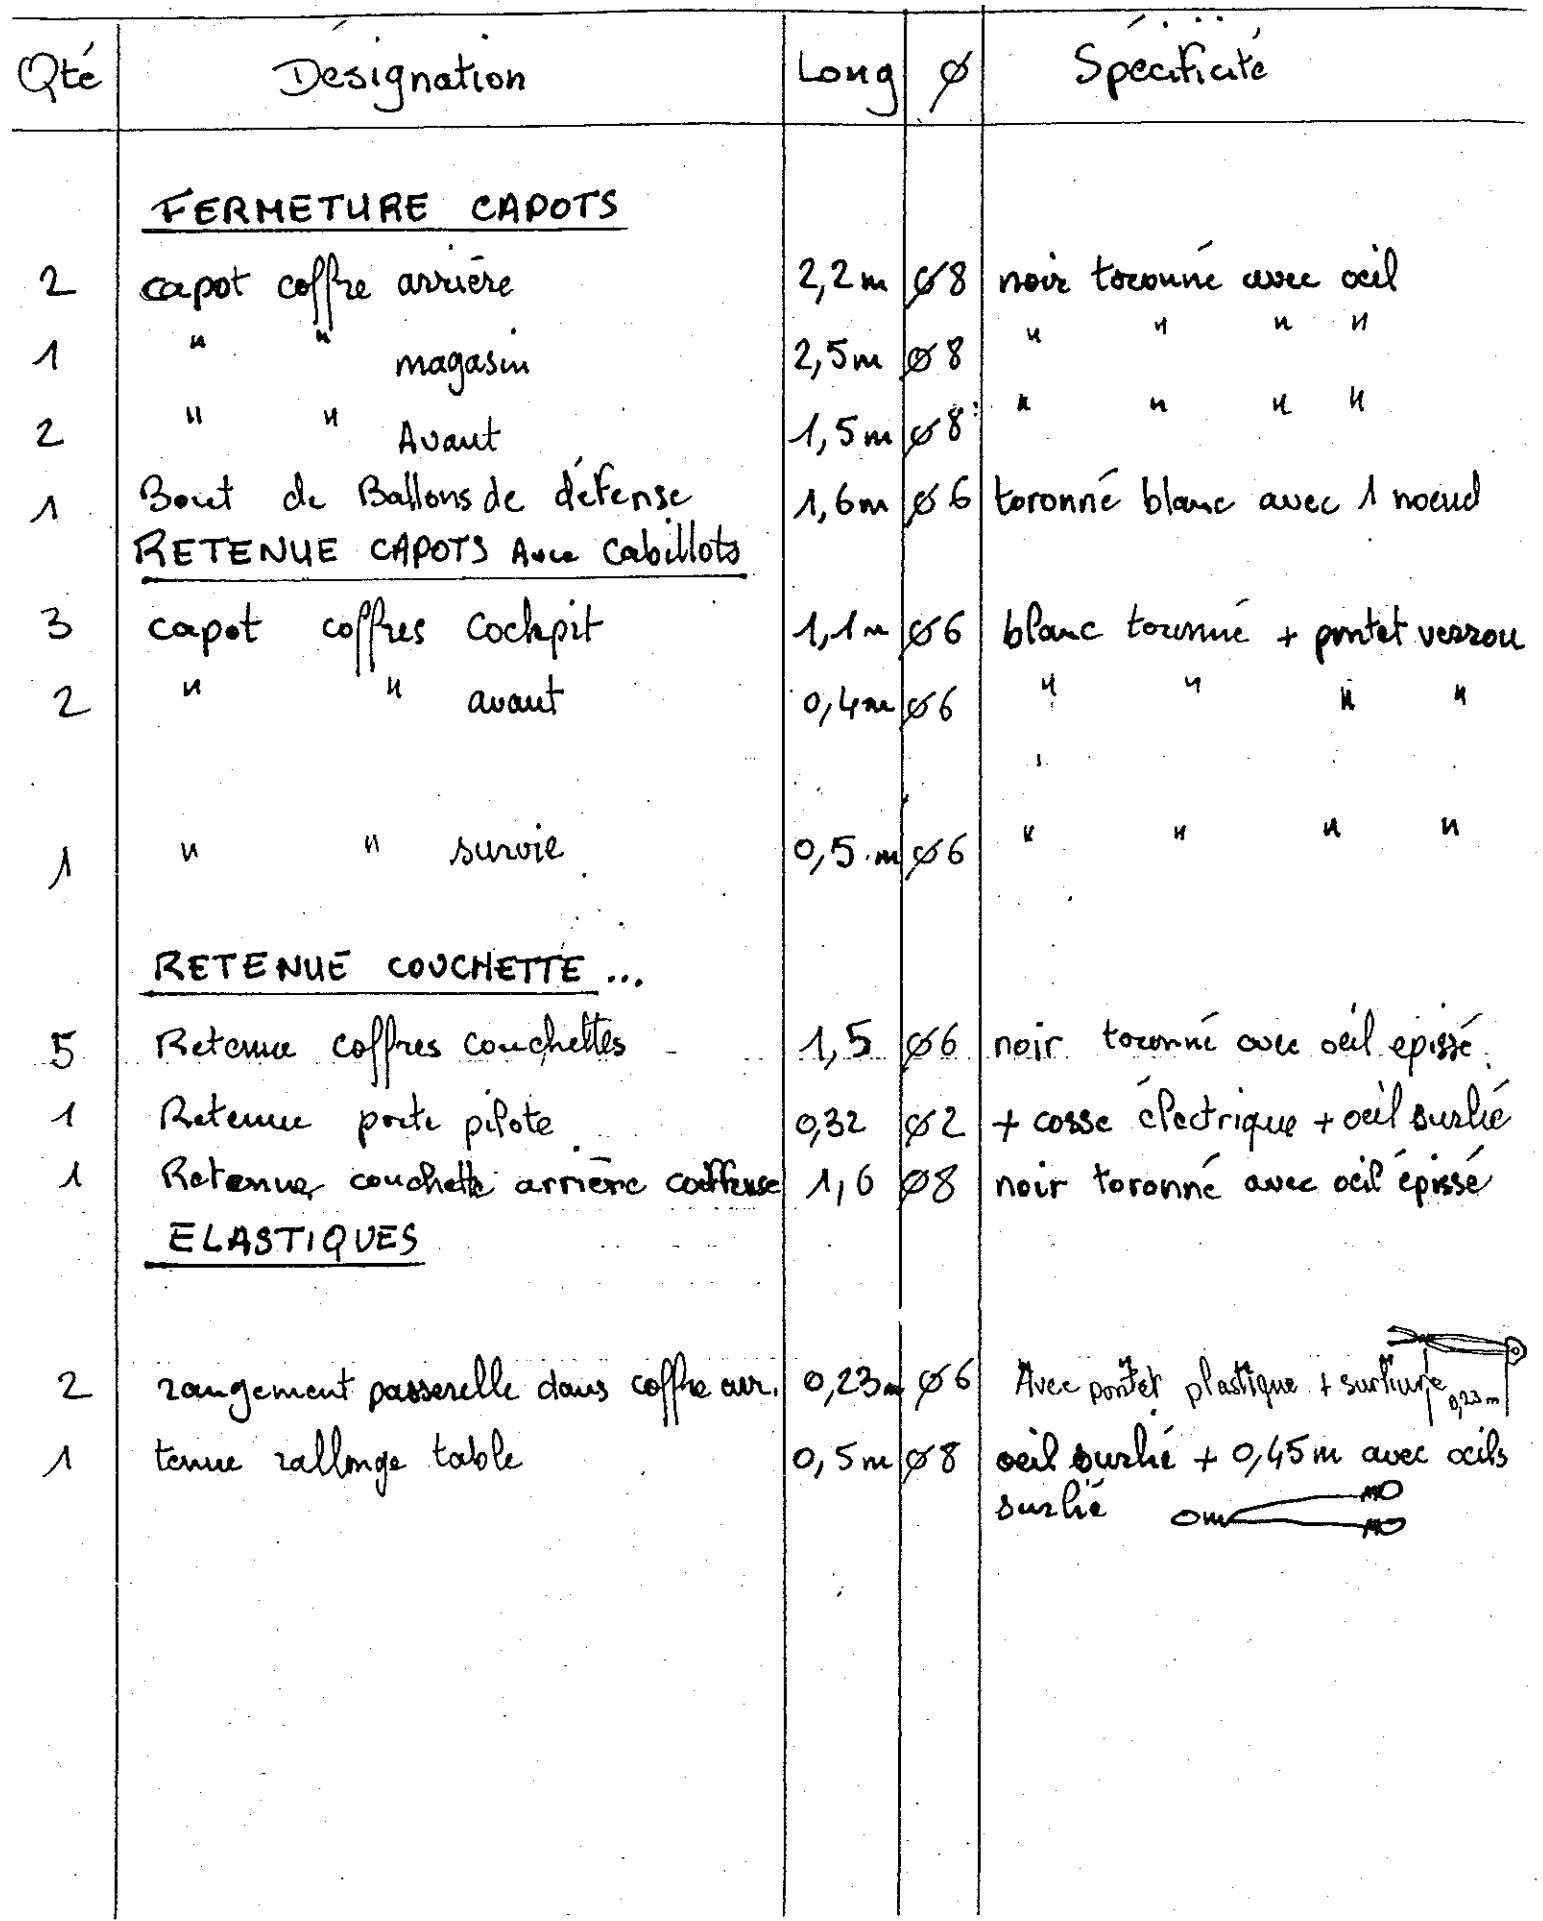 Qté Désignation Long Ø Spécificité
FERMETURE CAPOTS
2 capot coffre arrière 2,2m Ø8 noir toronné avec oeil
1 " " magasin 2,5m Ø8 " " " "
2 " " Avant 1,5m Ø8 " " " "
1 Bout de Ballons de défense 1,6m Ø6 toronné blanc avec 1 noeud
RETENUE CAPOTS Avec Cabillots
3 capot coffres Cockpit 1,1m Ø6 blanc toronné + pontet verrou
2 " " avant 0,4m Ø6 " " " "
1 " " survie 0,5m Ø6 " " " "
RETENUE COUCHETTE ...
5 Retenue coffres couchettes 1,5 Ø6 noir toronné avec oeil épissé.
1 Retenue porte pilote 0,32 Ø2 + cosse électrique + oeil surlié
1 Retenue couchette arrière coiffeuse 1,6 Ø8 noir toronné avec oeil épissé
ELASTIQUES
2 rangement passerelle dans coffre arr. 0,23m Ø6 Avec pontet plastique + surliure 0,23m
1 tenue rallonge table 0,5m Ø8 oeil surlié + 0,45m avec oeils
surlié